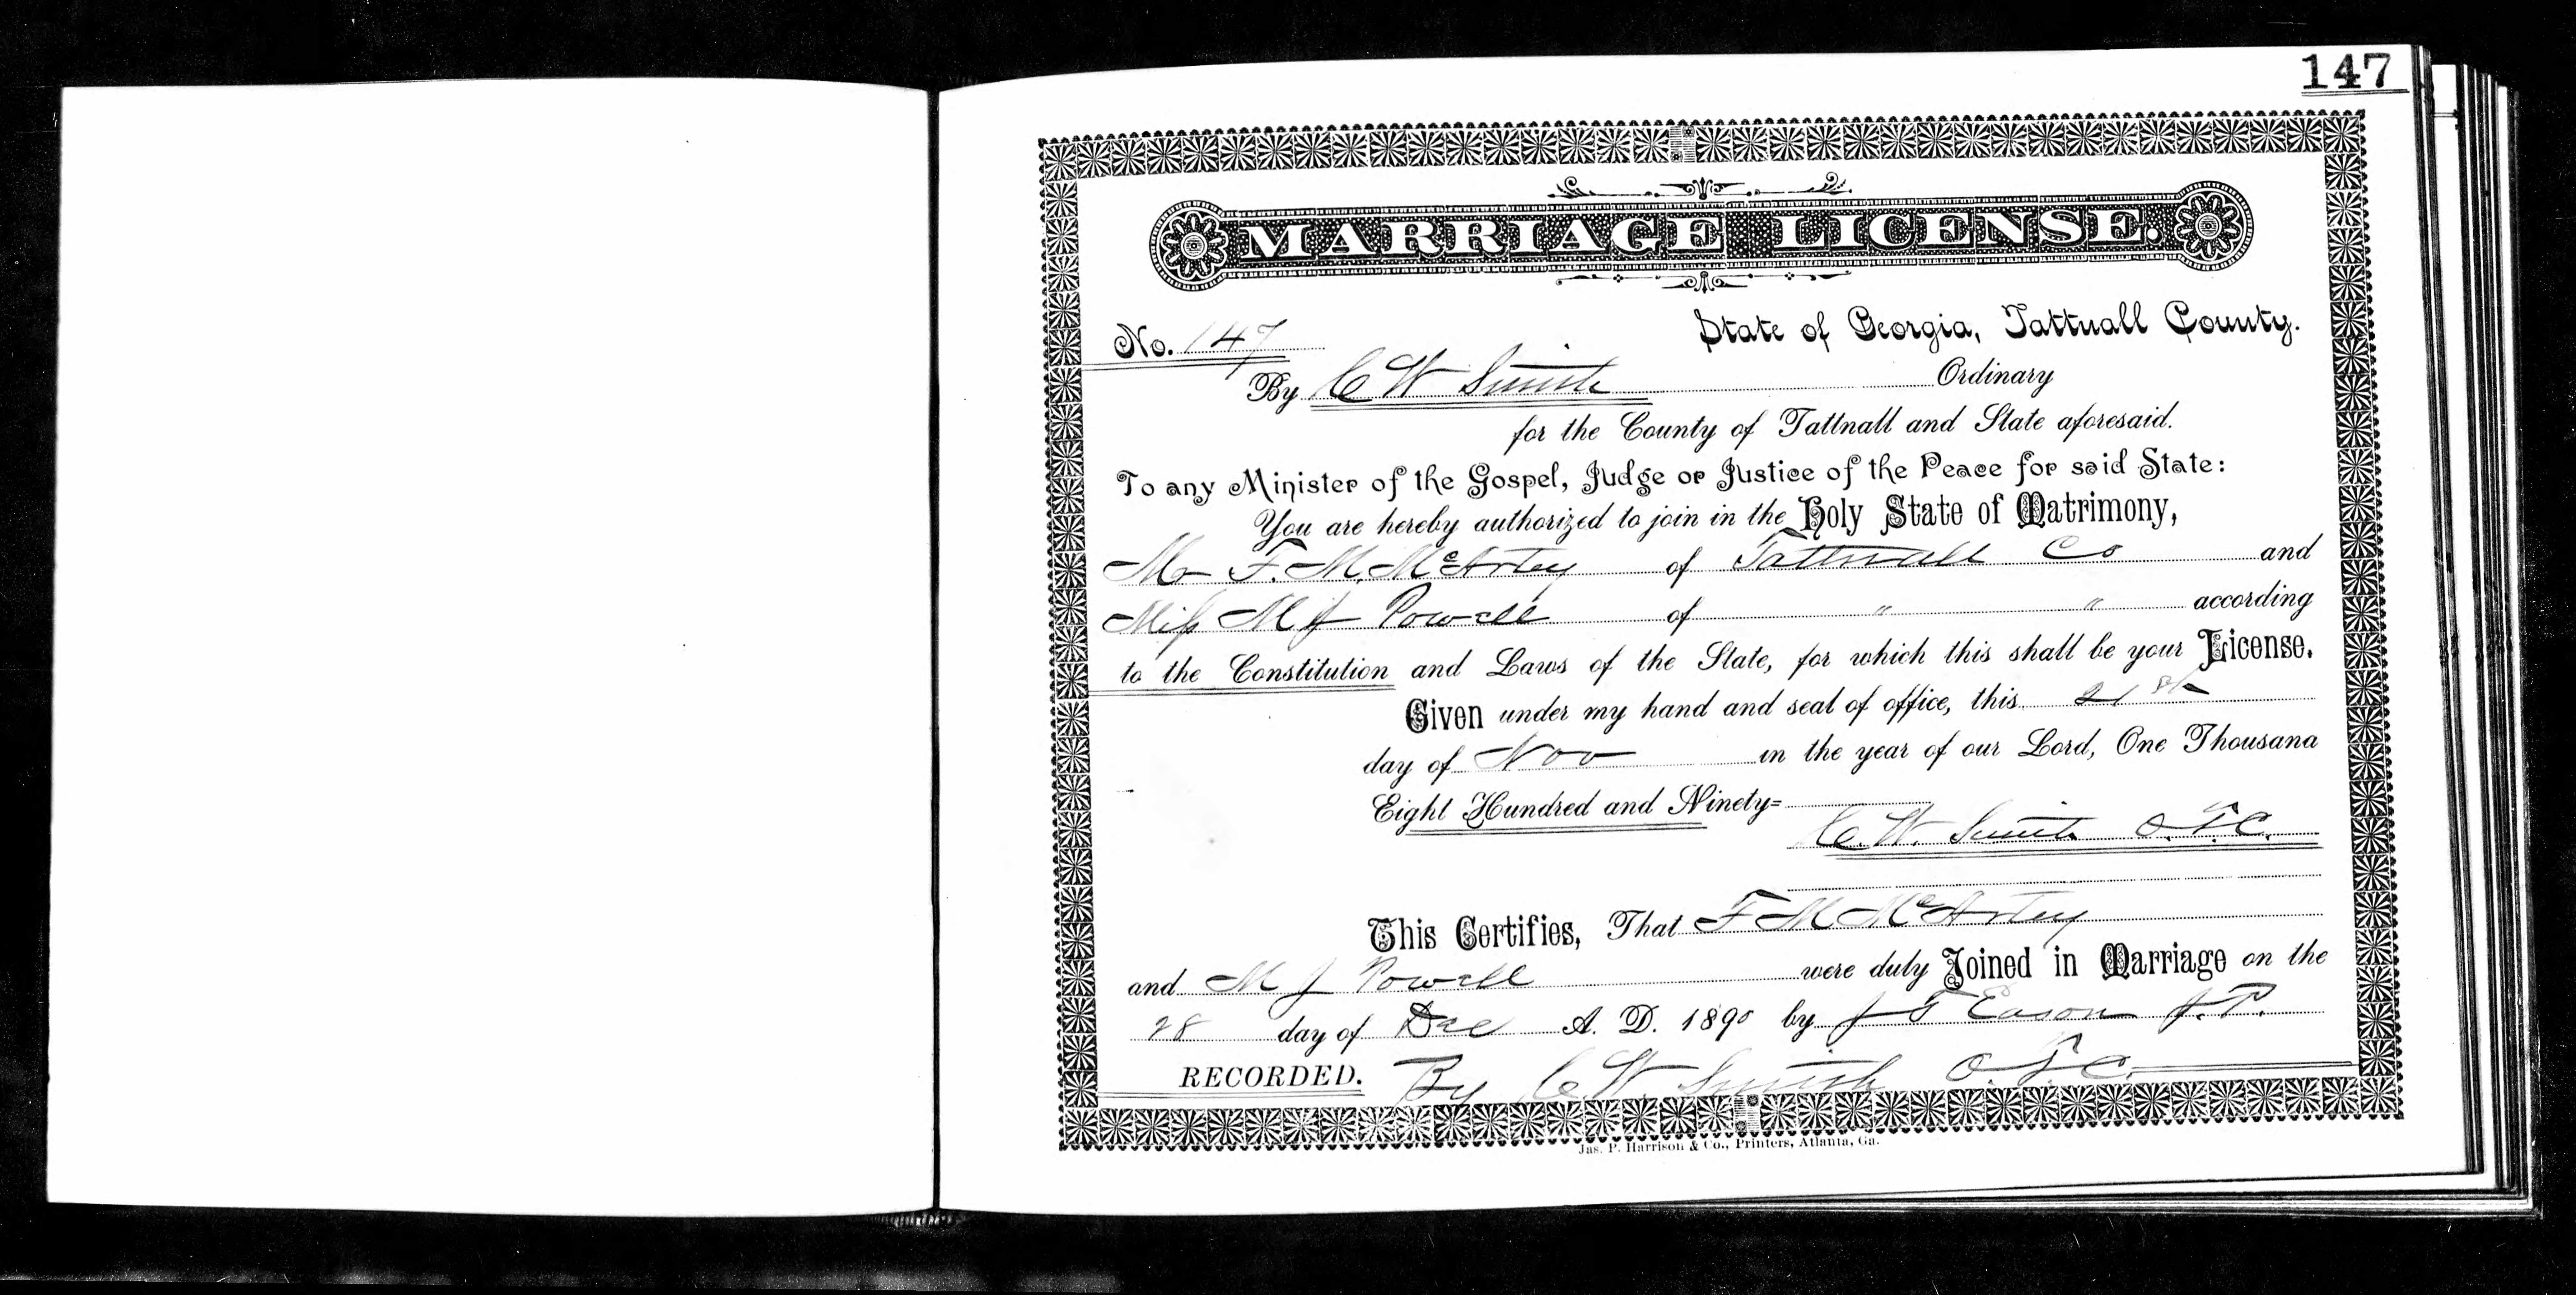 147
MARRIAGE LICENSE.
State of Georgia, Tattnall County.
No. 147
By C W Smith Ordinary
for the County of Tattnall and State aforesaid.
To any Minister of the Gospel, Judge or Justice of the Peace for said State:
You are hereby authorized to join in the Holy State of Matrimony,
Mr F. M. McArty of Tattnall Co and
Miss M J Powell of " " according
to the Constitution and Laws of the State, for which this shall be your License.
Given under my hand and seal of office, this 21st
day of Nov in the year of our Lord, One Thousand
Eight Hundred and Ninety=
C. W. Smith O. T. C.
This Certifies, That F M McArty
and M J Powell were duly Joined in Marriage on the
28 day of Dec A. D. 1890 by J T Eason J. P.
RECORDED. By C. W. Smith O. T. C.
Jas. P. Harrison & Co., Printers, Atlanta, Ga.